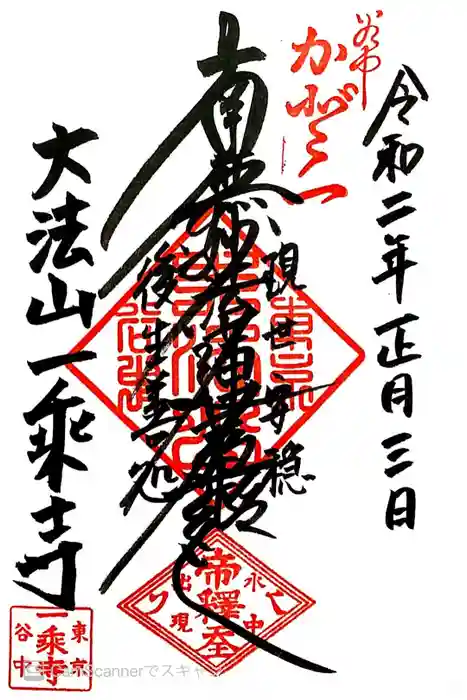 令和二年正月三日
谷中
現世安穏
南無妙法蓮華経
後生善処
大法山一乗寺
帝釋天
出現
東京
谷中
一乗寺
CamScannerでスキャン